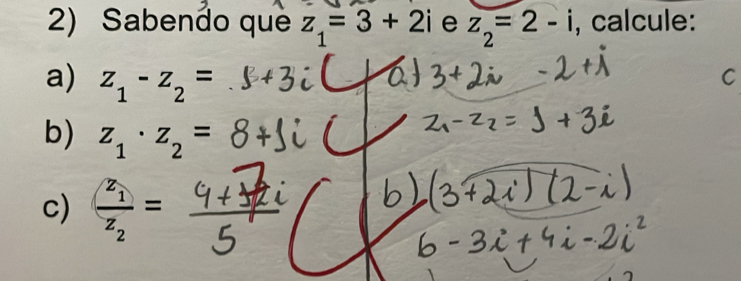 2) Sabendo que z1 = 3 + 2i e z2 = 2 - i, calcule:
a) z1 - z2 = 1+3i
b) z1 · z2 = 8+1i
c) z1/z2 = 4+7i/5
a) 3+2i -2+i
z1-z2 = 1+3i
b) (3+2i)(2-i)
6-3i+4i-2i²